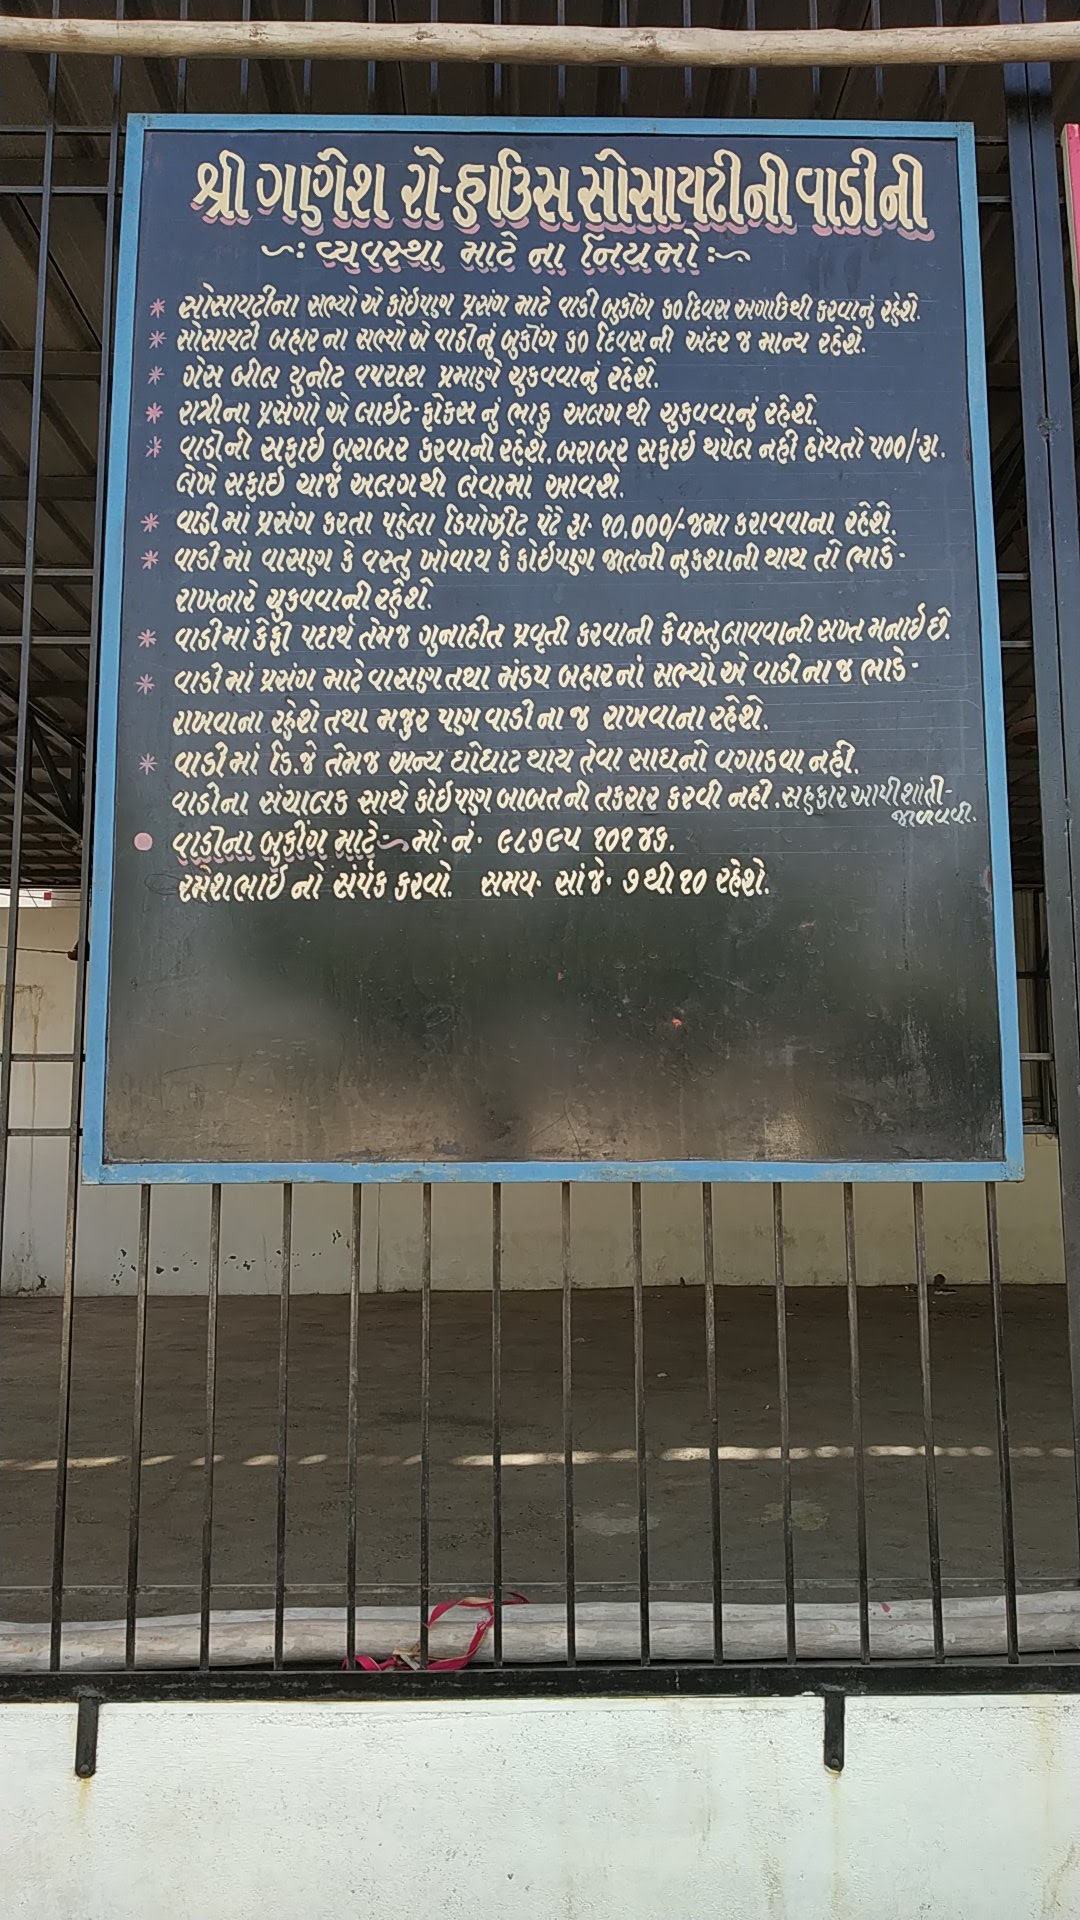 શ્રી ગણેશ રો-હાઉસ સોસાયટીની વાડીની
~: વ્યવસ્થા માટે ના નિયમો :~
* સોસાયટીના સભ્યો એ કોઇપણ પ્રસંગ માટે વાડી બુકીંગ ૩૦ દિવસ અગાઉથી કરવાનું રહેશે.
* સોસાયટી બહાર ના સભ્યો એ વાડીનું બુકીંગ ૩૦ દિવસ ની અંદર જ માન્ય રહેશે.
* ગેસ બીલ યુનીટ વપરાશ પ્રમાણે ચુકવવાનું રહેશે.
* રાત્રીના પ્રસંગો એ લાઇટ-ફોકસ નું ભાડુ અલગ થી ચુકવવાનું રહેશે.
* વાડીની સફાઇ બરાબર કરવાની રહેશે. બરાબર સફાઇ થયેલ નહી હોયતો ૫૦૦/રૂા.
લેખે સફાઇ ચાર્જ અલગથી લેવામાં આવશે.
* વાડીમાં પ્રસંગ કરતા પહેલા ડિપોઝીટ પેટે રૂા. ૧૦,૦૦૦/-જમા કરાવવાના રહેશે.
* વાડીમાં વાસણ કે વસ્તુ ખોવાય કે કોઇપણ જાતની નુકશાની થાય તો ભાડે-
રાખનારે ચુકવવાની રહેશે.
* વાડીમાં કેફી પદાર્થ તેમજ ગુનાહીત પ્રવૃતી કરવાની કે વસ્તુ લાવવાની સખ્ત મનાઇ છે.
* વાડીમાં પ્રસંગ માટે વાસણ તથા મંડપ બહારનાં સભ્યો એ વાડીના જ ભાડે-
રાખવાના રહેશે તથા મજુર પણ વાડીના જ રાખવાના રહેશે.
* વાડીમાં ડિ.જે તેમજ અન્ય ઘોંઘાટ થાય તેવા સાધનો વગાડવા નહી.
વાડીના સંચાલક સાથે કોઇપણ બાબતની તકરાર કરવી નહી. સહકાર આપી શાંતી-
જાળવવી.
વાડીના બુકીંગ માટે~ મો. નં. ૯૮૭૯૫ ૧૦૧૪૩.
રમેશભાઇ નો સંર્પક કરવો. સમય. સાંજે. ૭ થી ૧૦ રહેશે.